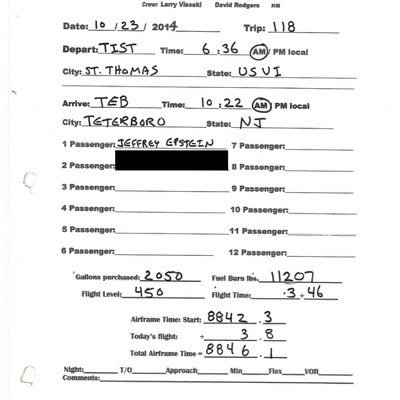 Crew: Larry Visoski David Rodgers NM
Date: 10 / 23 / 2014 Trip: 118
Depart: TIST Time: 6 : 36 AM/ PM local
City: ST. THOMAS State: USVI
Arrive: TEB Time: 10 : 22 AM/ PM local
City: TETERBORO State: NJ
1 Passenger: JEFFREY EPSTEIN 7 Passenger:
2 Passenger: 8 Passenger:
3 Passenger: 9 Passenger:
4 Passenger: 10 Passenger:
5 Passenger: 11 Passenger:
6 Passenger: 12 Passenger:
Gallons purchased: 2050 Fuel Burn lbs. 11207
Flight Level: 450 Flight Time: 3 + 46
Airframe Time: Start: 8842 . 3
Today's flight: + 3 . 8
Total Airframe Time = 8846 . 1
Night: T/O Approach Min Flex VOR
Comments: